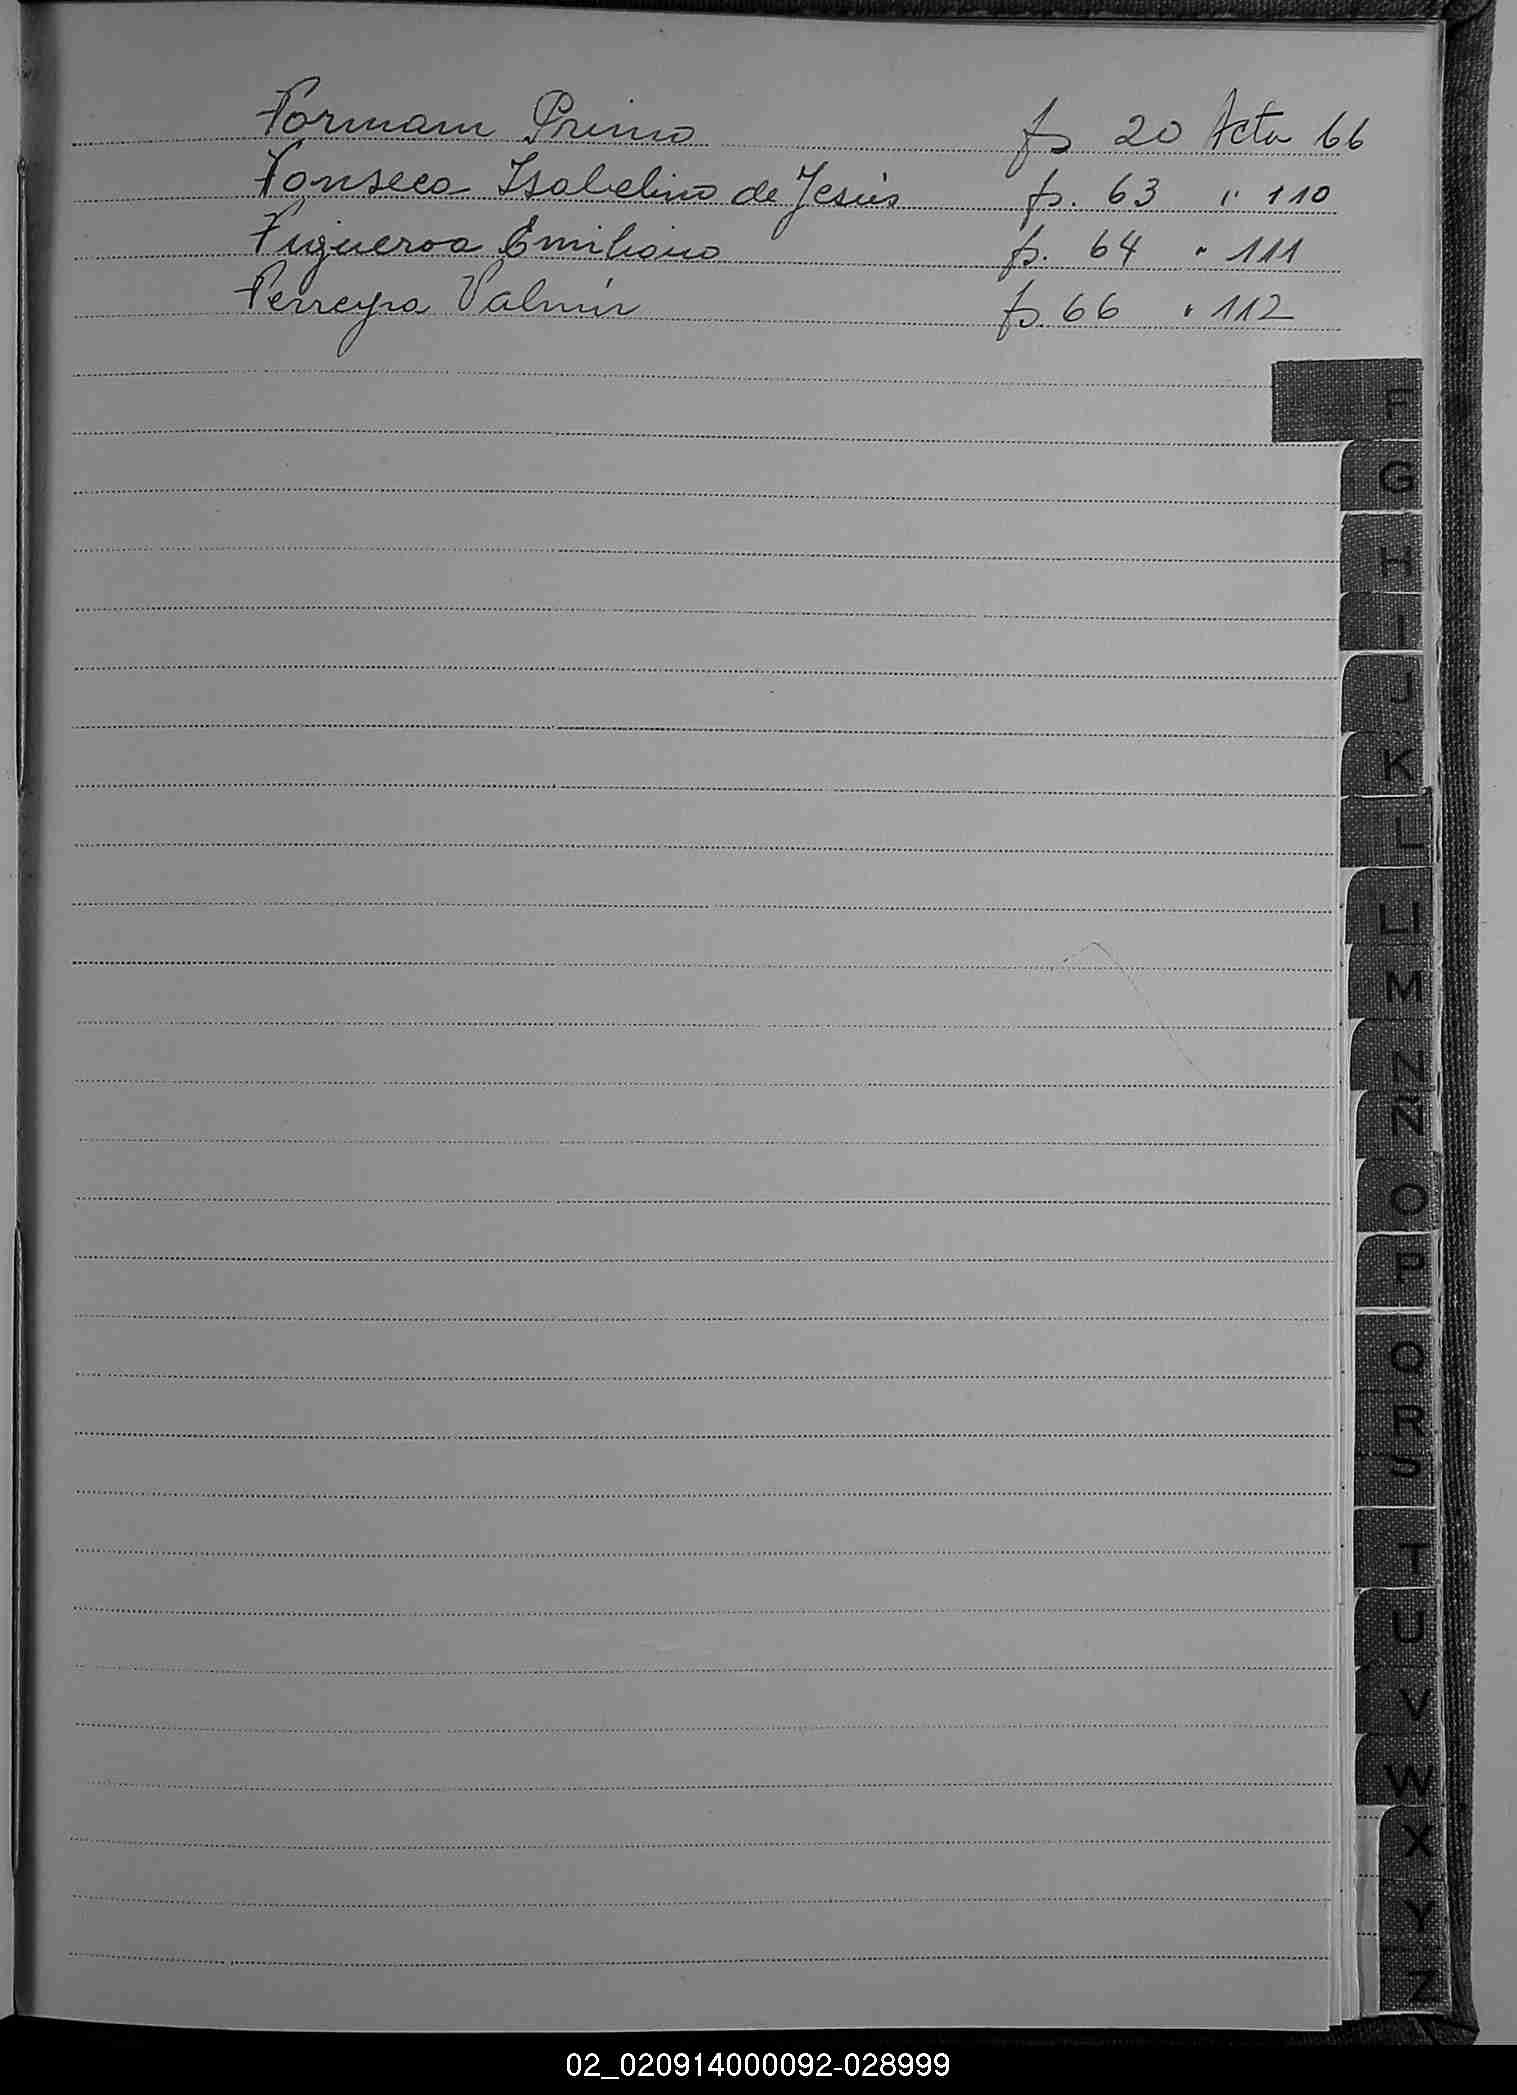 Formam Primo fs 20 Acta 66
Fonseca Isabelino de Jesús fs. 63 " 110
Figueroa Emiliano fs. 64 " 111
Ferreyra Valmir fs. 66 " 112
F
G
H
I
J
K
L
LL
M
N
Ñ
O
P
Q
R
S
T
U
V
W
X
Y
Z
02_020914000092-028999